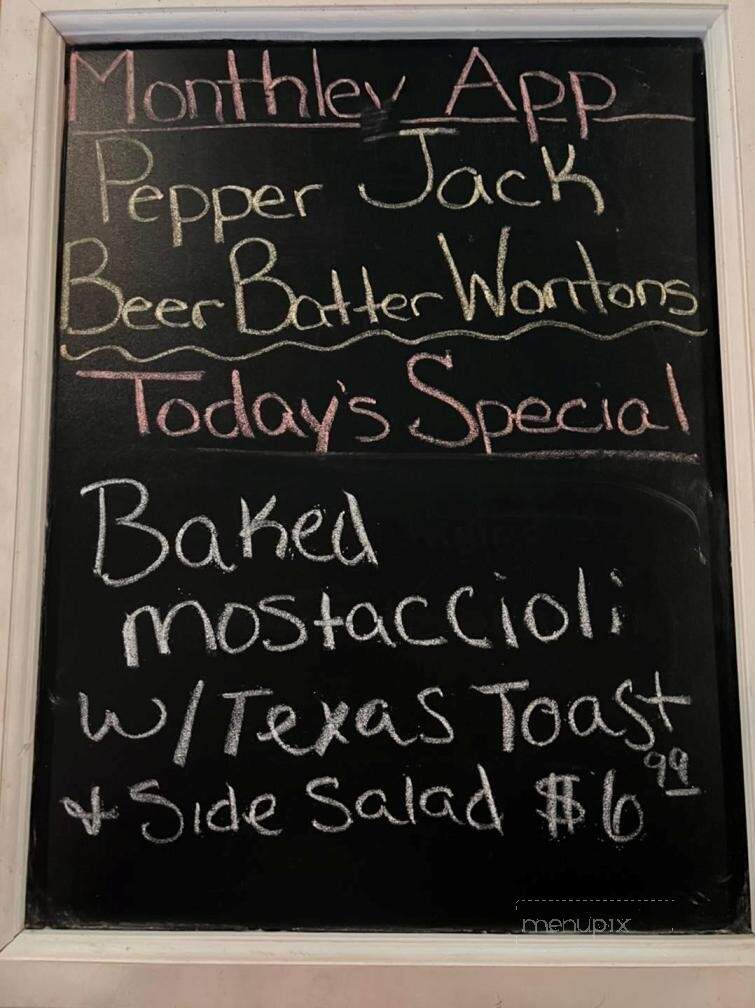 Monthley App
Pepper Jack
Beer Batter Wontons
Today's Special
Baked
mostaccioli
w/Texas Toast
& Side Salad $6 99
menupix